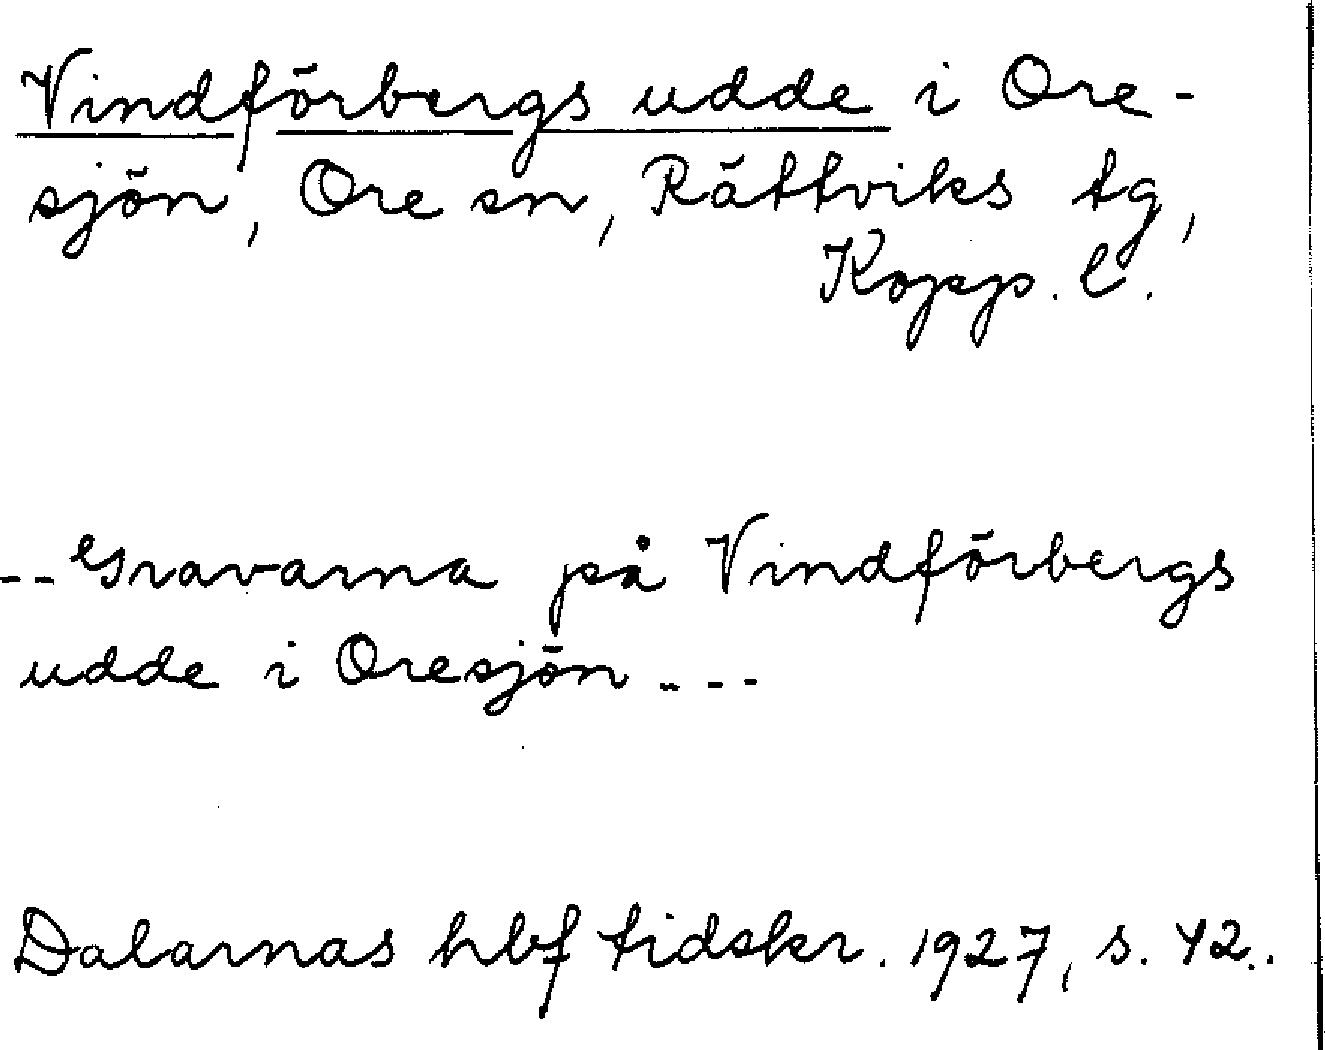 Vindförbergs udde i Ore-
sjön, Ore sn, Rättviks tg,
Kopp. l.
-- Gravarna på Vindförbergs
udde i Oresjön ---
Dalarnas hbf tidskr. 1927, s. 42..